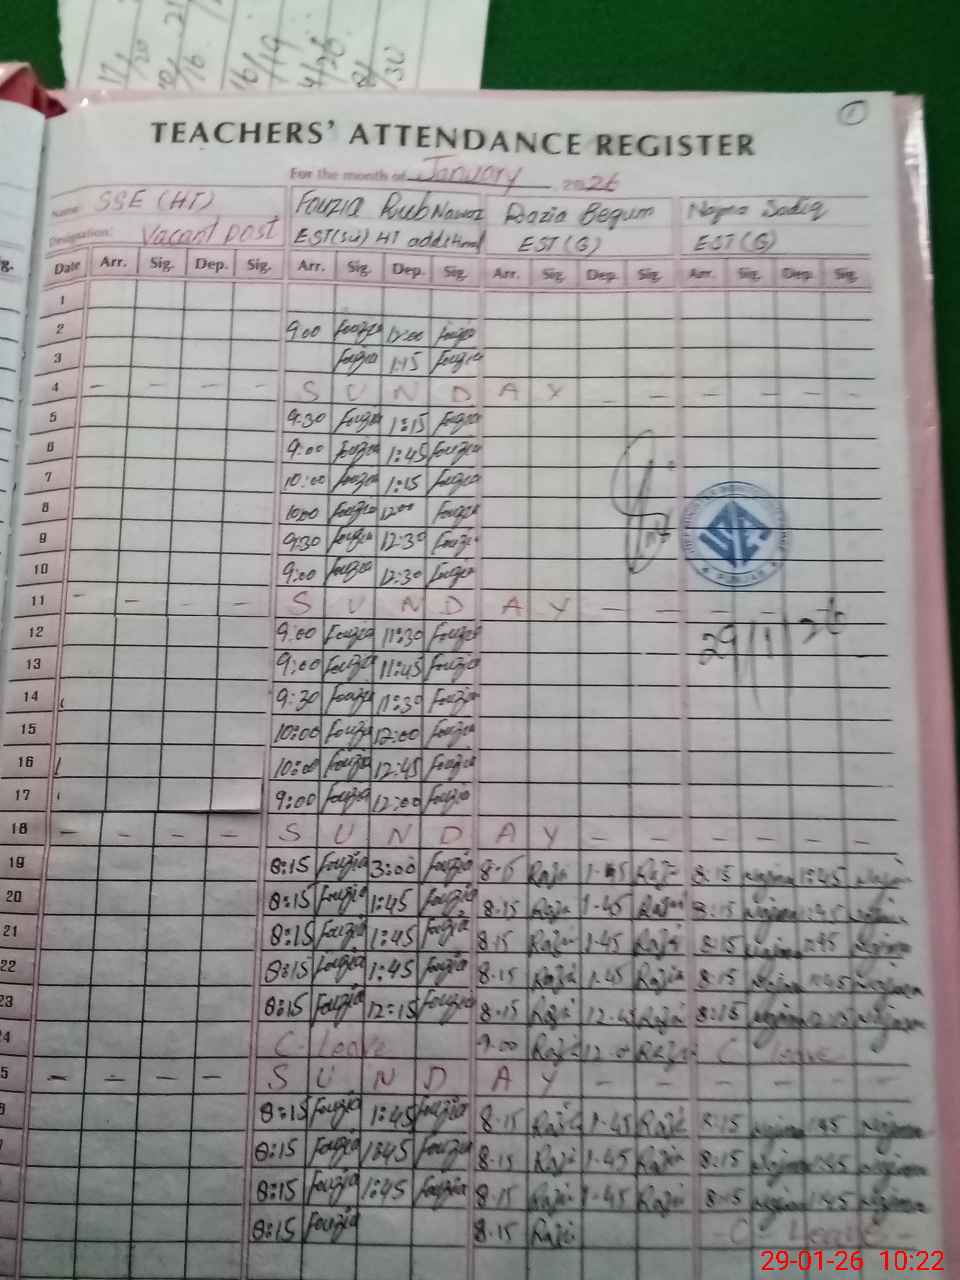 TEACHERS' ATTENDANCE REGISTER
For the month of January 2026
Name SSE (HT) Fouzia Rub Nawaz Razia Begum Najma Sadiq
Designation: Vacant post EST(Sci) HT additional EST (G) EST (G)
Date Arr. Sig. Dep. Sig. Arr. Sig. Dep. Sig. Arr. Sig. Dep. Sig. Arr. Sig. Dep. Sig.
1
2 9:00 Fouzia 12:00 Fouzia
3 Fouzia 1:15 Fouzia
4 - - - - S U N D A Y - - - - - -
5 9:30 Fouzia 1:15 Fouzia
6 9:00 Fouzia 1:45 Fouzia
7 10:00 Fouzia 1:15 Fouzia
8 10:00 Fouzia 12:00 Fouzia
9 9:30 Fouzia 12:30 Fouzia
10 9:00 Fouzia 12:30 Fouzia
11 - - - - S U N D A Y - - - - - -
12 9:00 Fouzia 11:30 Fouzia
29/1/26
13 9:00 Fouzia 11:45 Fouzia
14 9:30 Fouzia 11:30 Fouzia
15 10:00 Fouzia 12:00 Fouzia
16 10:00 Fouzia 12:45 Fouzia
17 9:00 Fouzia 12:00 Fouzia
18 - - - - S U N D A Y - - - - - -
19 8:15 Fouzia 3:00 Fouzia Razia Razia 8:15 Najma 1:45 Najma
20 8:15 Fouzia 1:45 Fouzia 8.15 Razia 1.45 Razia 8:15 Najma 1:45 Najma
21 8:15 Fouzia 1:45 Fouzia 8.15 Razia 1.45 Razia 8:15 Najma 1:45 Najma
22 8:15 Fouzia 1:45 Fouzia 8.15 Razia 1.45 Razia 8:15 Najma 1:45 Najma
23 8:15 Fouzia 12:15 Fouzia 8.15 Razia 12.45 Razia 8:15 Najma 12:15 Najma
24 C-Leave 9.00 Razia Razia C Leave
5 - - - - S U N D A Y - - - - - -
8:15 Fouzia 1:45 Fouzia 8.15 Razia 1.45 Razia 8:15 Najma 1:45 Najma
8:15 Fouzia 1:45 Fouzia 8.15 Razia 1.45 Razia 8:15 Najma 1:45 Najma
8:15 Fouzia 1:45 Fouzia 8.15 Razia 1.45 Razia 8:15 Najma 1:45 Najma
8:15 Fouzia 8.15 Razia - C - Leave -
29-01-26 10:22